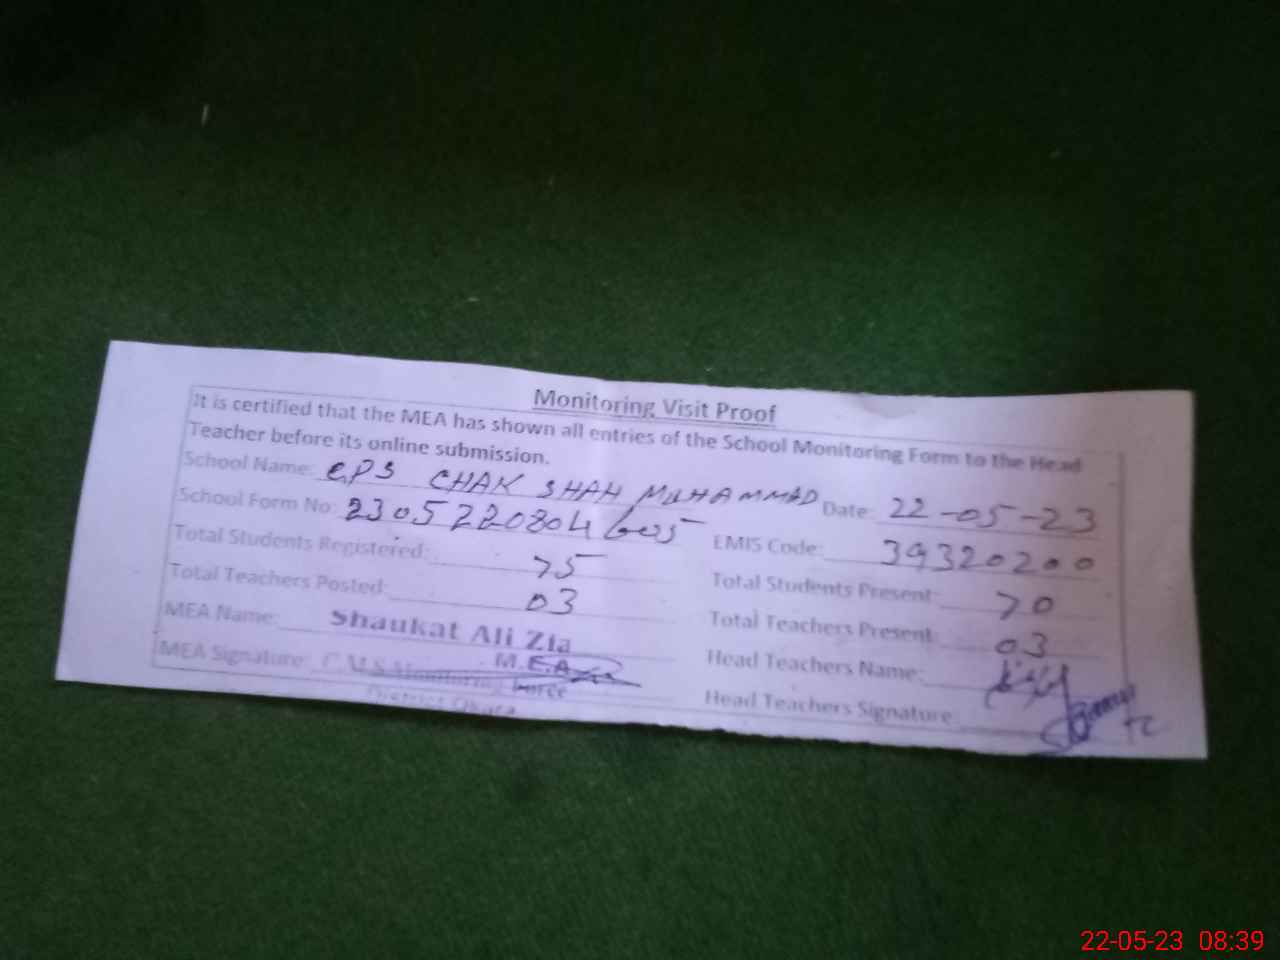 Monitoring Visit Proof
It is certified that the MEA has shown all entries of the School Monitoring Form to the Head
Teacher before its online submission.
School Name: GPS CHAK SHAH MUHAMMAD Date: 22-05-23
School Form No: 2305220804 EMIS Code: 39320200
Total Students Registered: 75 Total Students Present: 70
Total Teachers Posted: 03 Total Teachers Present: 03
MEA Name: Shaukat Ali Zia Head Teachers Name:
M.E.A
MEA Signature: C.M.S Monitoring Force Head Teachers Signature
District Okara
22-05-23 08:39